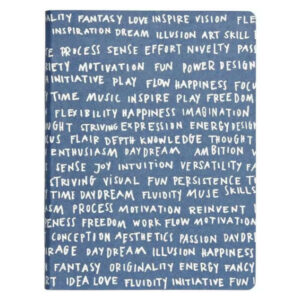 ALITY FANTASY LOVE INSPIRE VISION FLE
INSPIRATION DREAM ILLUSION ART SKILL
E PROCESS SENSE EFFORT NOVELTY PASS
RIETY MOTIVATION FUN POWER DESIGN
INITIATIVE PLAY FLOW HAPPINESS FOCU
TIME MUSIC INSPIRE PLAY FREEDOM
FLEXIBILITY HAPPINESS IMAGINATION
UGHT STRIVING EXPRESSION ENERGY DESIGN
CUS FLAIR DEPTH KNOWLEDGE THOUGHT
ENTHUSIASM DAYDREAM AMBITION V
SENSE JOY INTUITION VERSATILITY FA
STRIVING VISUAL FUN PERSISTENCE T
TIME DAYDREAM FLUIDITY MUSE SKILLS
ASM PROCESS MOTIVATION REINVENT V
ENESS FREEDOM WORK FLOW MOTIVATION
CONCEPTION AESTHETICS PASSION DAYDR
RAGE DAYDREAM ILLUSION HAPPINESS
FANTASY ORIGINALITY ENERGY FANCY
ART IDEA LOVE FLUIDITY INITIATIVE FUN